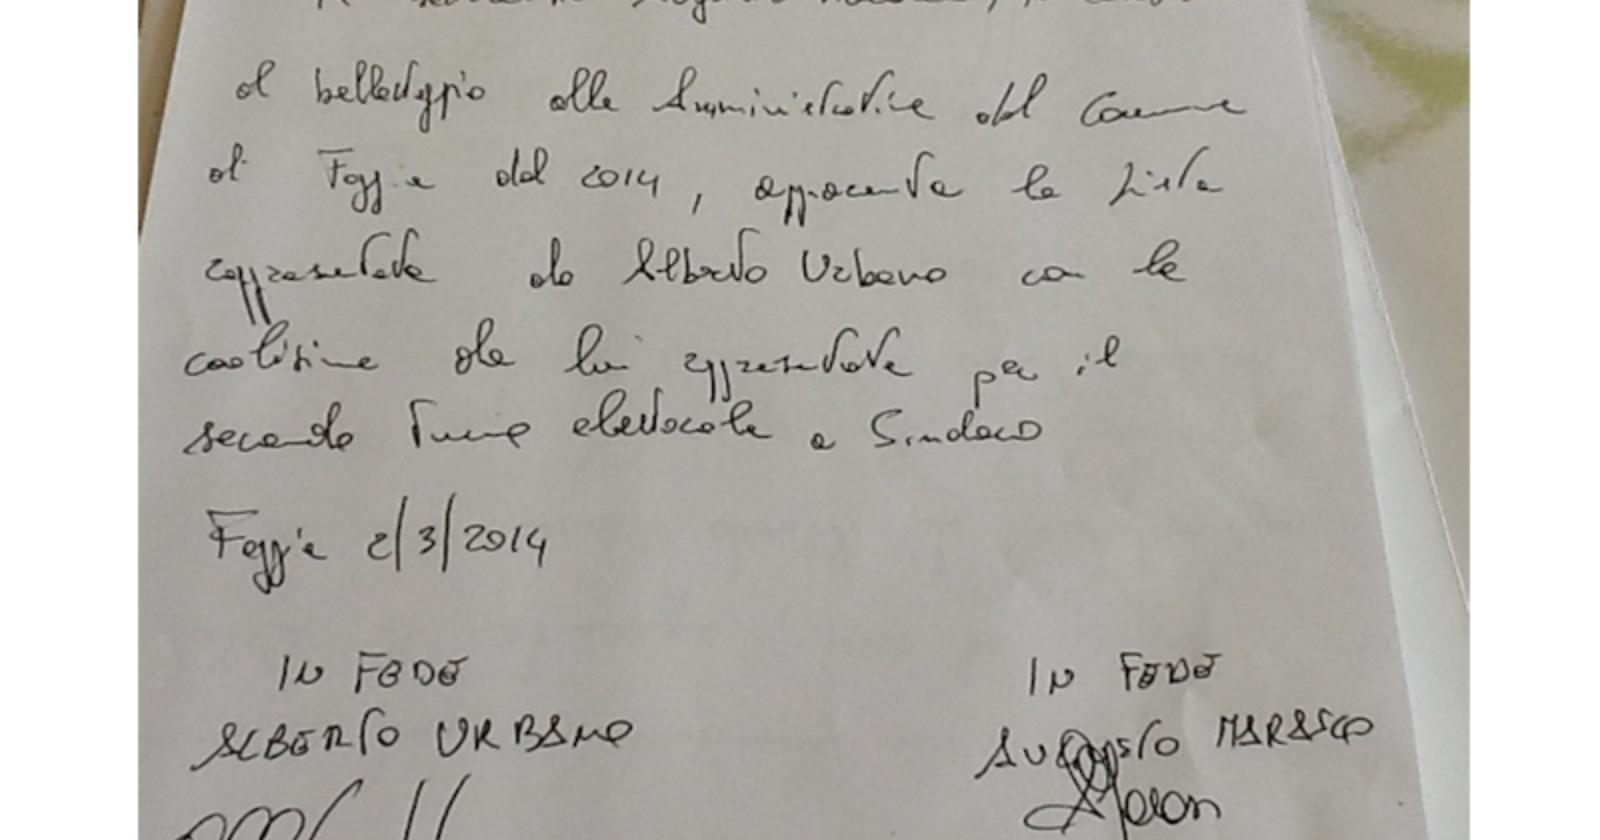 al ballottaggio alle Amministrative del Comune
di Foggia del 2014, apparenta la lista
rappresentata da Alberto Urbano con la
coalizione da lui rappresentata per il
secondo turno elettorale a Sindaco
Foggia 2/3/2014
IN FEDE IN FEDE
ALBERTO URBANO AUGUSTO MARASCO